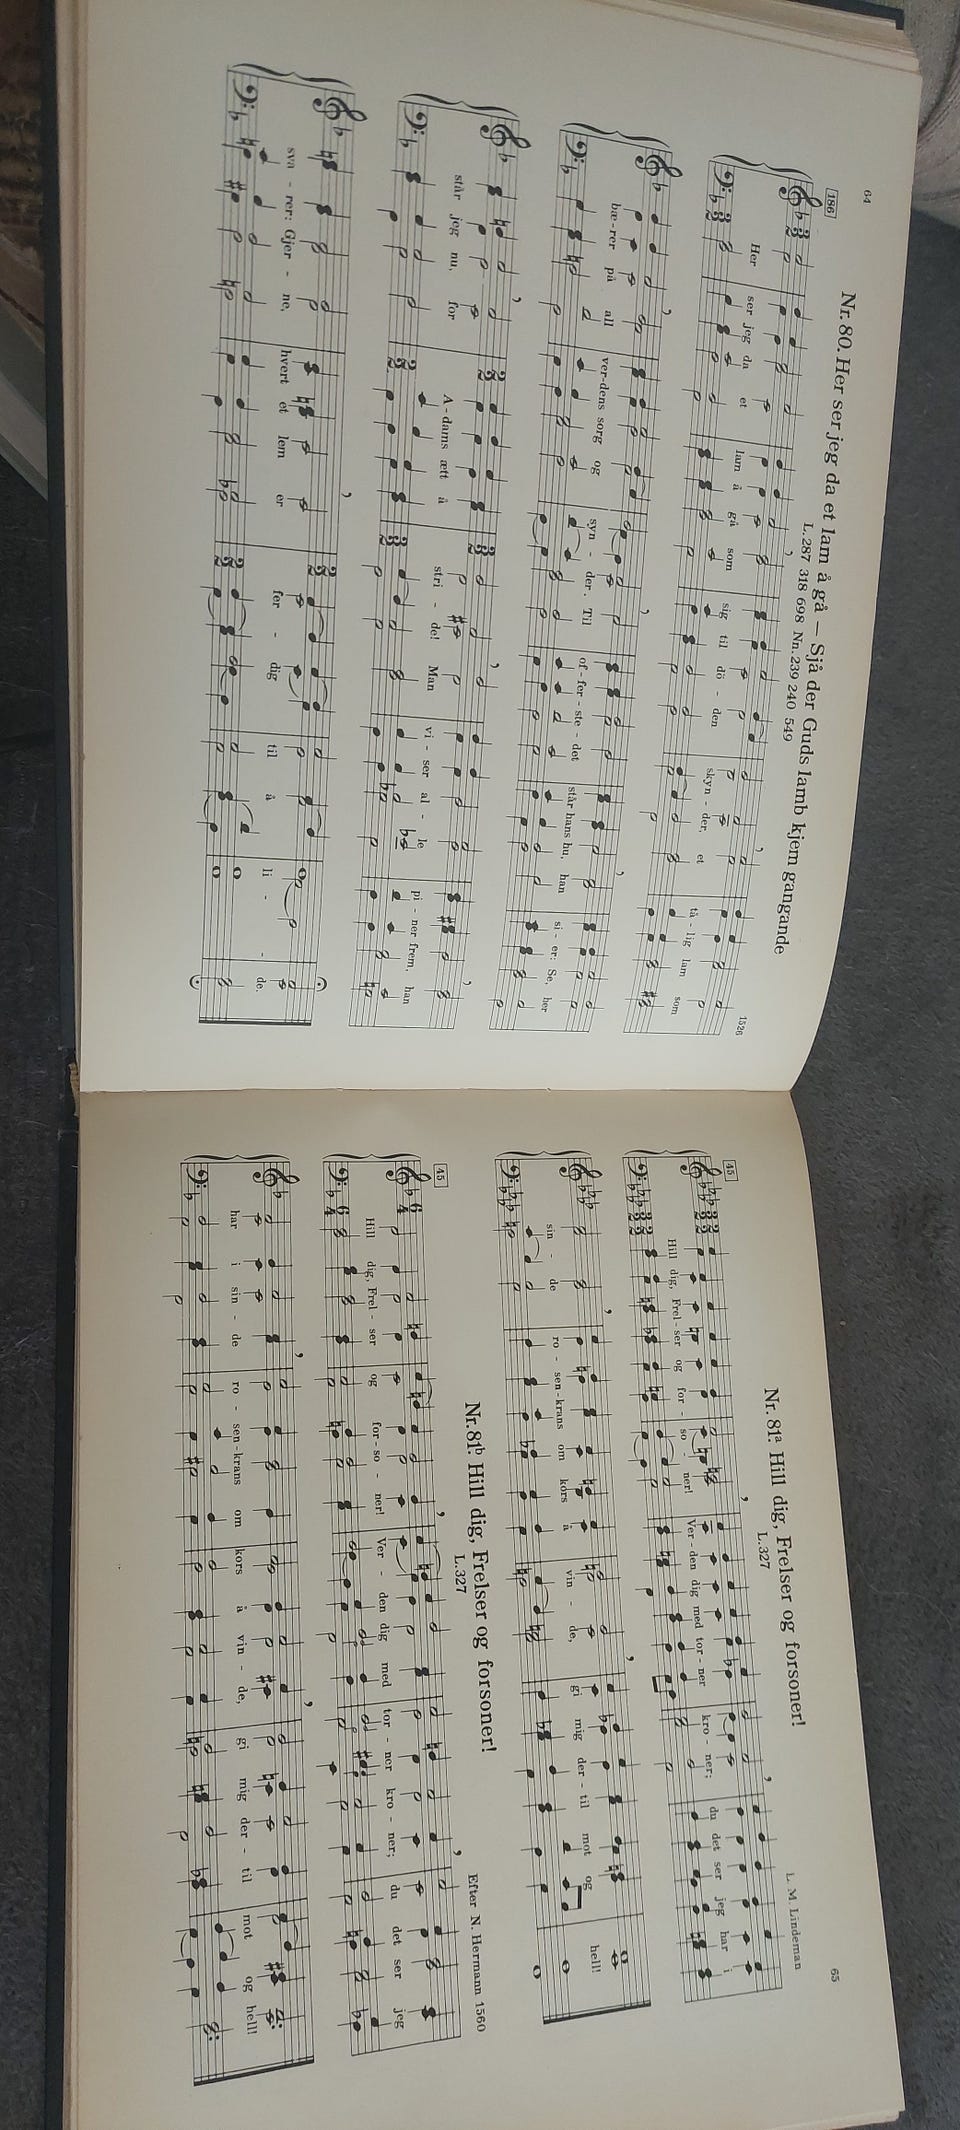 64
Nr. 80. Her ser jeg da et lam å gå — Sjå der Guds lamb kjem gangande
L.287 318 698 Nn.239 240 549
186
1526
Her ser jeg da et lam å gå som sig til dö - den skyn - der, et tå - lig lam som
bæ - rer på all ver - dens sorg og syn - der. Til of - fer - ste - det står hans hu, han si - er: Se, her
står jeg nu, for A - dams ætt å stri - de! Man vi - ser al - le pi - ner frem, han
sva - rer: Gjer - ne, hvert et lem er fer - dig til å li - de.
65
Nr. 81ª. Hill dig, Frelser og forsoner!
L.327
L. M. Lindeman
45
Hill dig, Frel - ser og for - so - ner! Ver - den dig med tor - ner kro - ner; du det ser jeg har i
sin - de ro - sen - krans om kors å vin - de, gi mig der - til mot og hell!
Nr. 81ᵇ. Hill dig, Frelser og forsoner!
L.327
Efter N. Hermann 1560
45
Hill dig, Frel - ser og for - so - ner! Ver - den dig med tor - ner kro - ner; du det ser jeg
har i sin - de ro - sen - krans om kors å vin - de, gi mig der - til mot og hell!